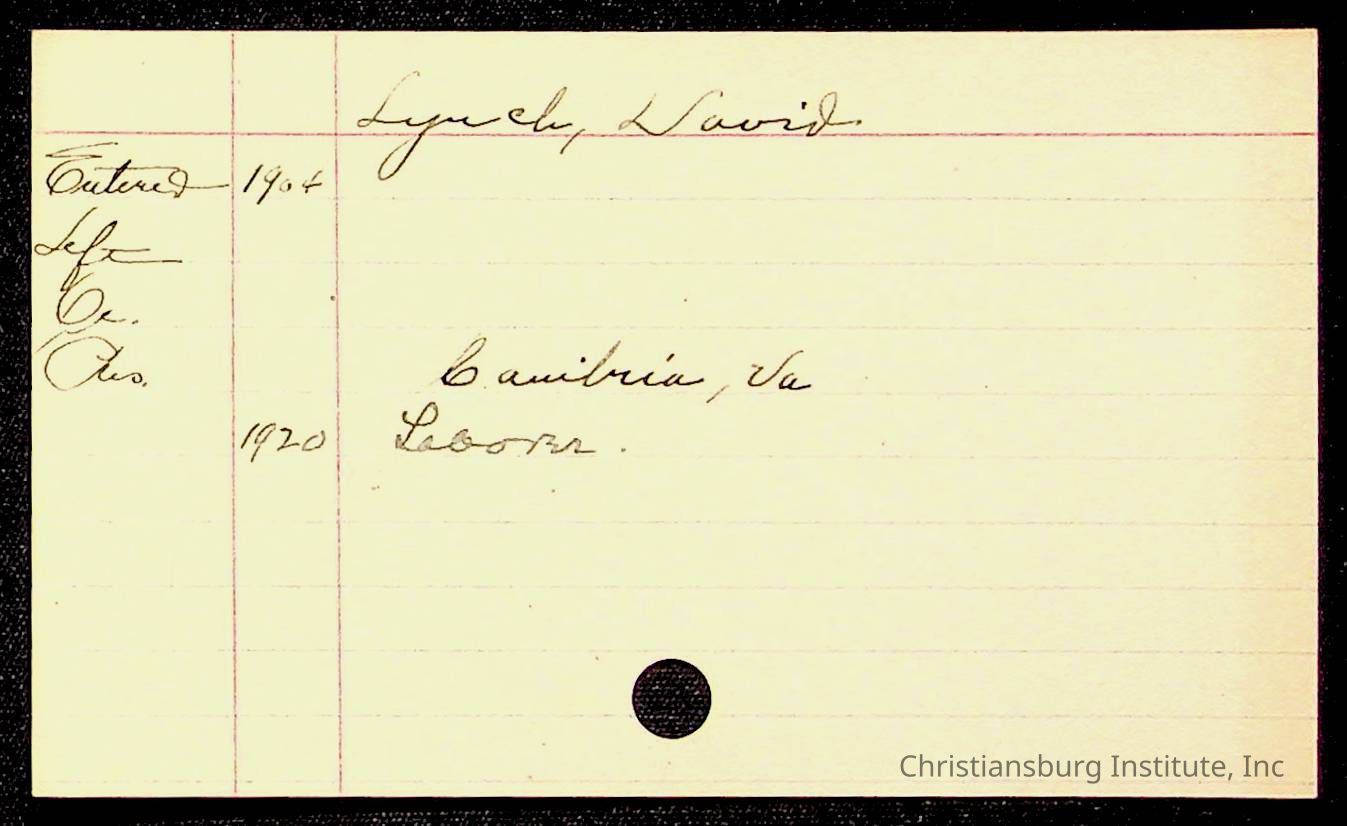 Lynch, David
Entered 1904
Left
Oc.
Res. Cambria, Va
1920 Laborer.
Christiansburg Institute, Inc